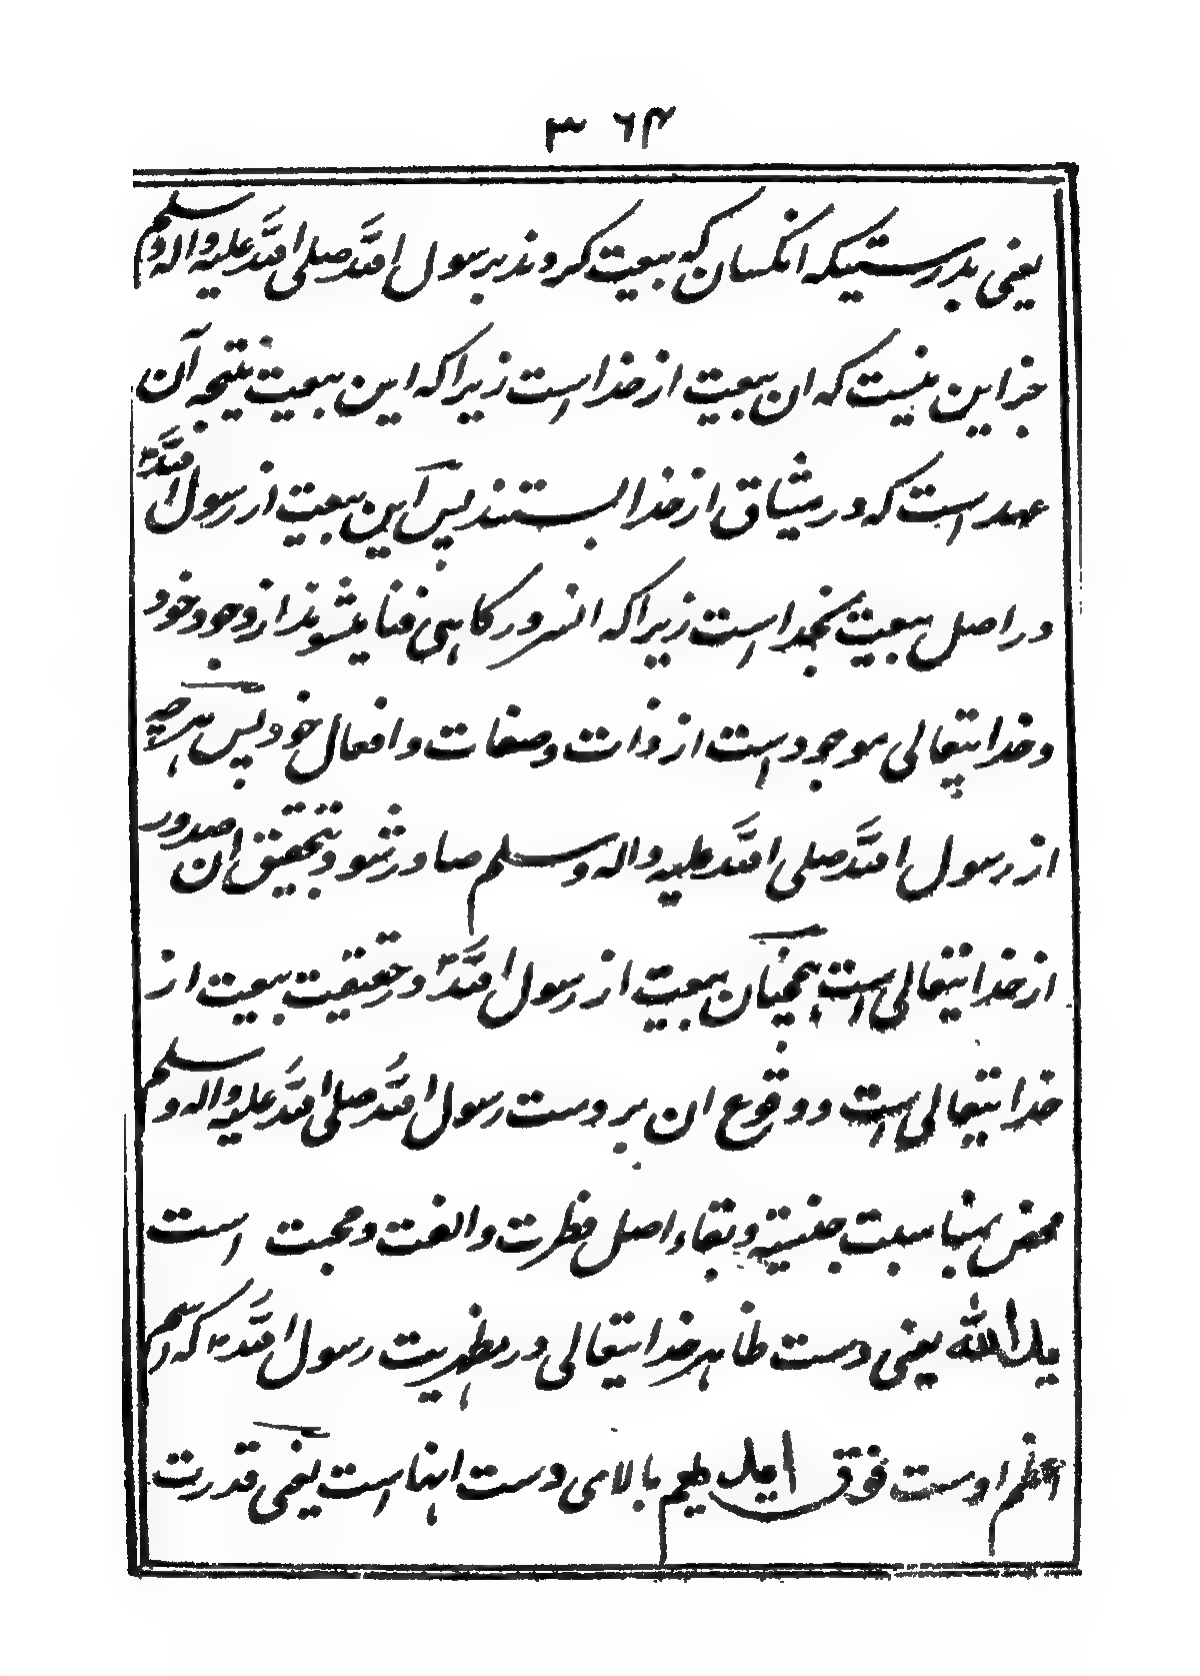 ۳۶۴
یعنی بدرستیکه انکسان که بیعت کردند برسول الله صلی الله علیه واله وسلم
جز این نیست که ان بیعت از خدا است زیرا که این بیعت نتیجه آن
عهد است که در میثاق از خدا بستند پس این بیعت از رسول الله ؐ
در اصل بیعت بخدا است زیرا که انسرور کاهی فنا میشوند از وجود خود
و خدایتعالی موجود است از ذات و صفات و افعال خود پس هرچه
از رسول الله صلی الله علیه واله وسلم صادر شود بتحقیق ان صدور
از خدایتعالی است همچنان بیعت از رسول الله ؐ در حقیقت بیعت از
خدایتعالی است و وقوع ان بر دست رسول الله صلی الله علیه واله وسلم
محض بمناسبت جنسیة و بقاء اصل فطرت والفت و محبت است
یدالله یعنی دست ظاهر خدایتعالی در مظهریت رسول الله ؐ که اسم
اعظم اوست فوق ایدیهم بالای دست انهاست یعنی قدرت